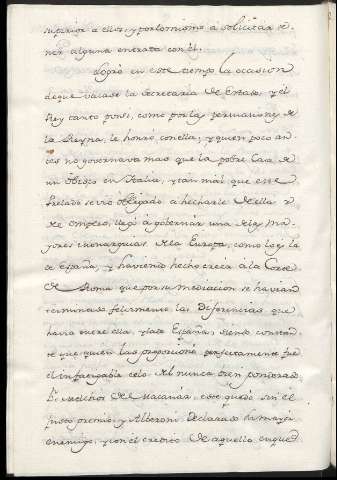 superior a ellos, y por lo mismo a solicitar te-
ner alguna entrada con él.
Logró en este tiempo la ocasion
de que vacase la Secretaría de Estado, y el
Rey tanto por si, como por las persuasiones de
la Reyna, le honró con ella; y quien poco an-
tes no governava mas que la pobre Casa de
un Obispo en Italia, y tan mal, que este
Prelado se vio obligado a hecharle de ella y
de empleo, llegó a gobernar una de las ma-
yores monarquias de la Europa, como lo es la
de España, y haviendo hecho creer à la Corte
de Roma que por su mediacion se havian
terminado felizmente las Diferencias que
havia entre ella, y la de España, siendo constan-
te que quien las proporcionó perfectamente fue
el infatigable celo del nunca bien ponderado
Dn. Melchor de Macanaz, este quedo sin el
justo premio, y Alberoni declarado su mayor
enemigo, y con el credito de aquello en que